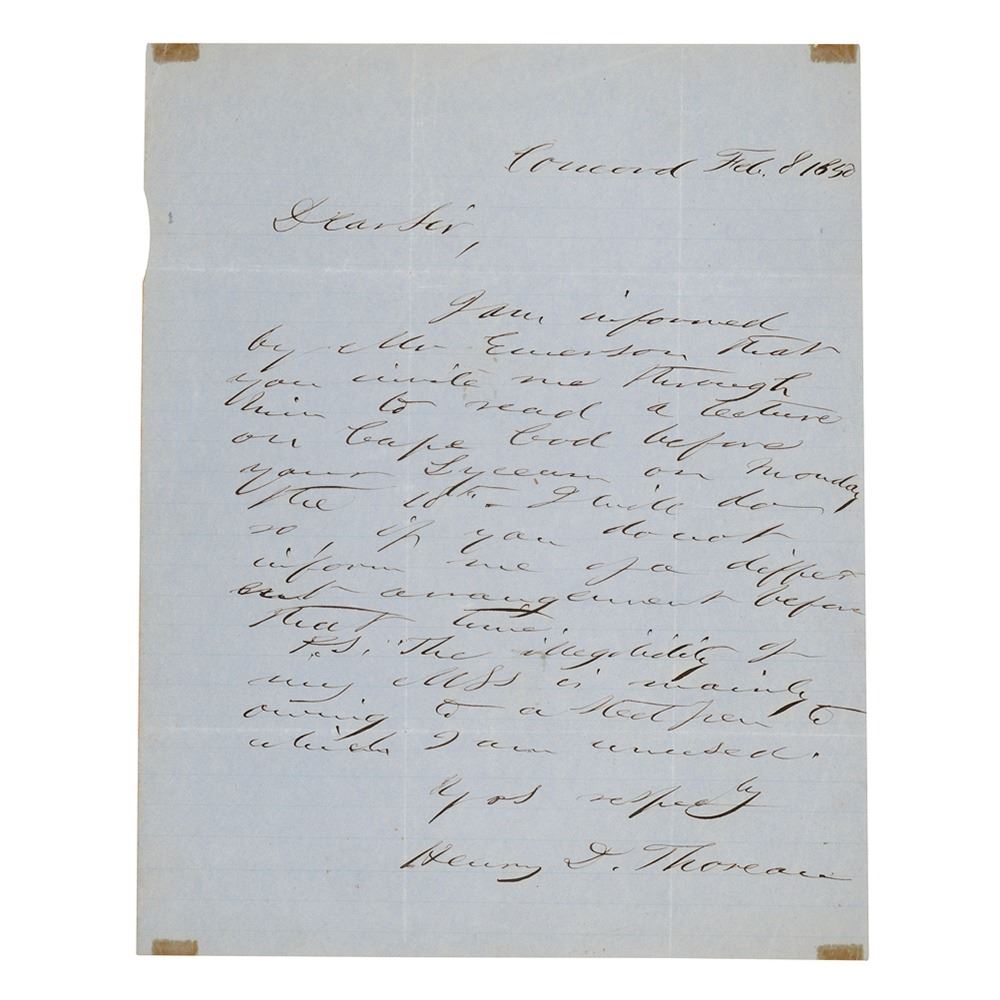 Concord Feb. 8 1850
Dear Sir,
I am informed
by Mr Emerson that
you invite me through
him to read a lecture
on Cape Cod before
your Lyceum on Monday
the 18th. I will do
so, if you do not
inform me of a differ
ent arrangement before
that time.
P.S. The illegibility of
my MSS is mainly
owing to a steel pen to
which I am unused.
Yrs respecty
Henry D. Thoreau